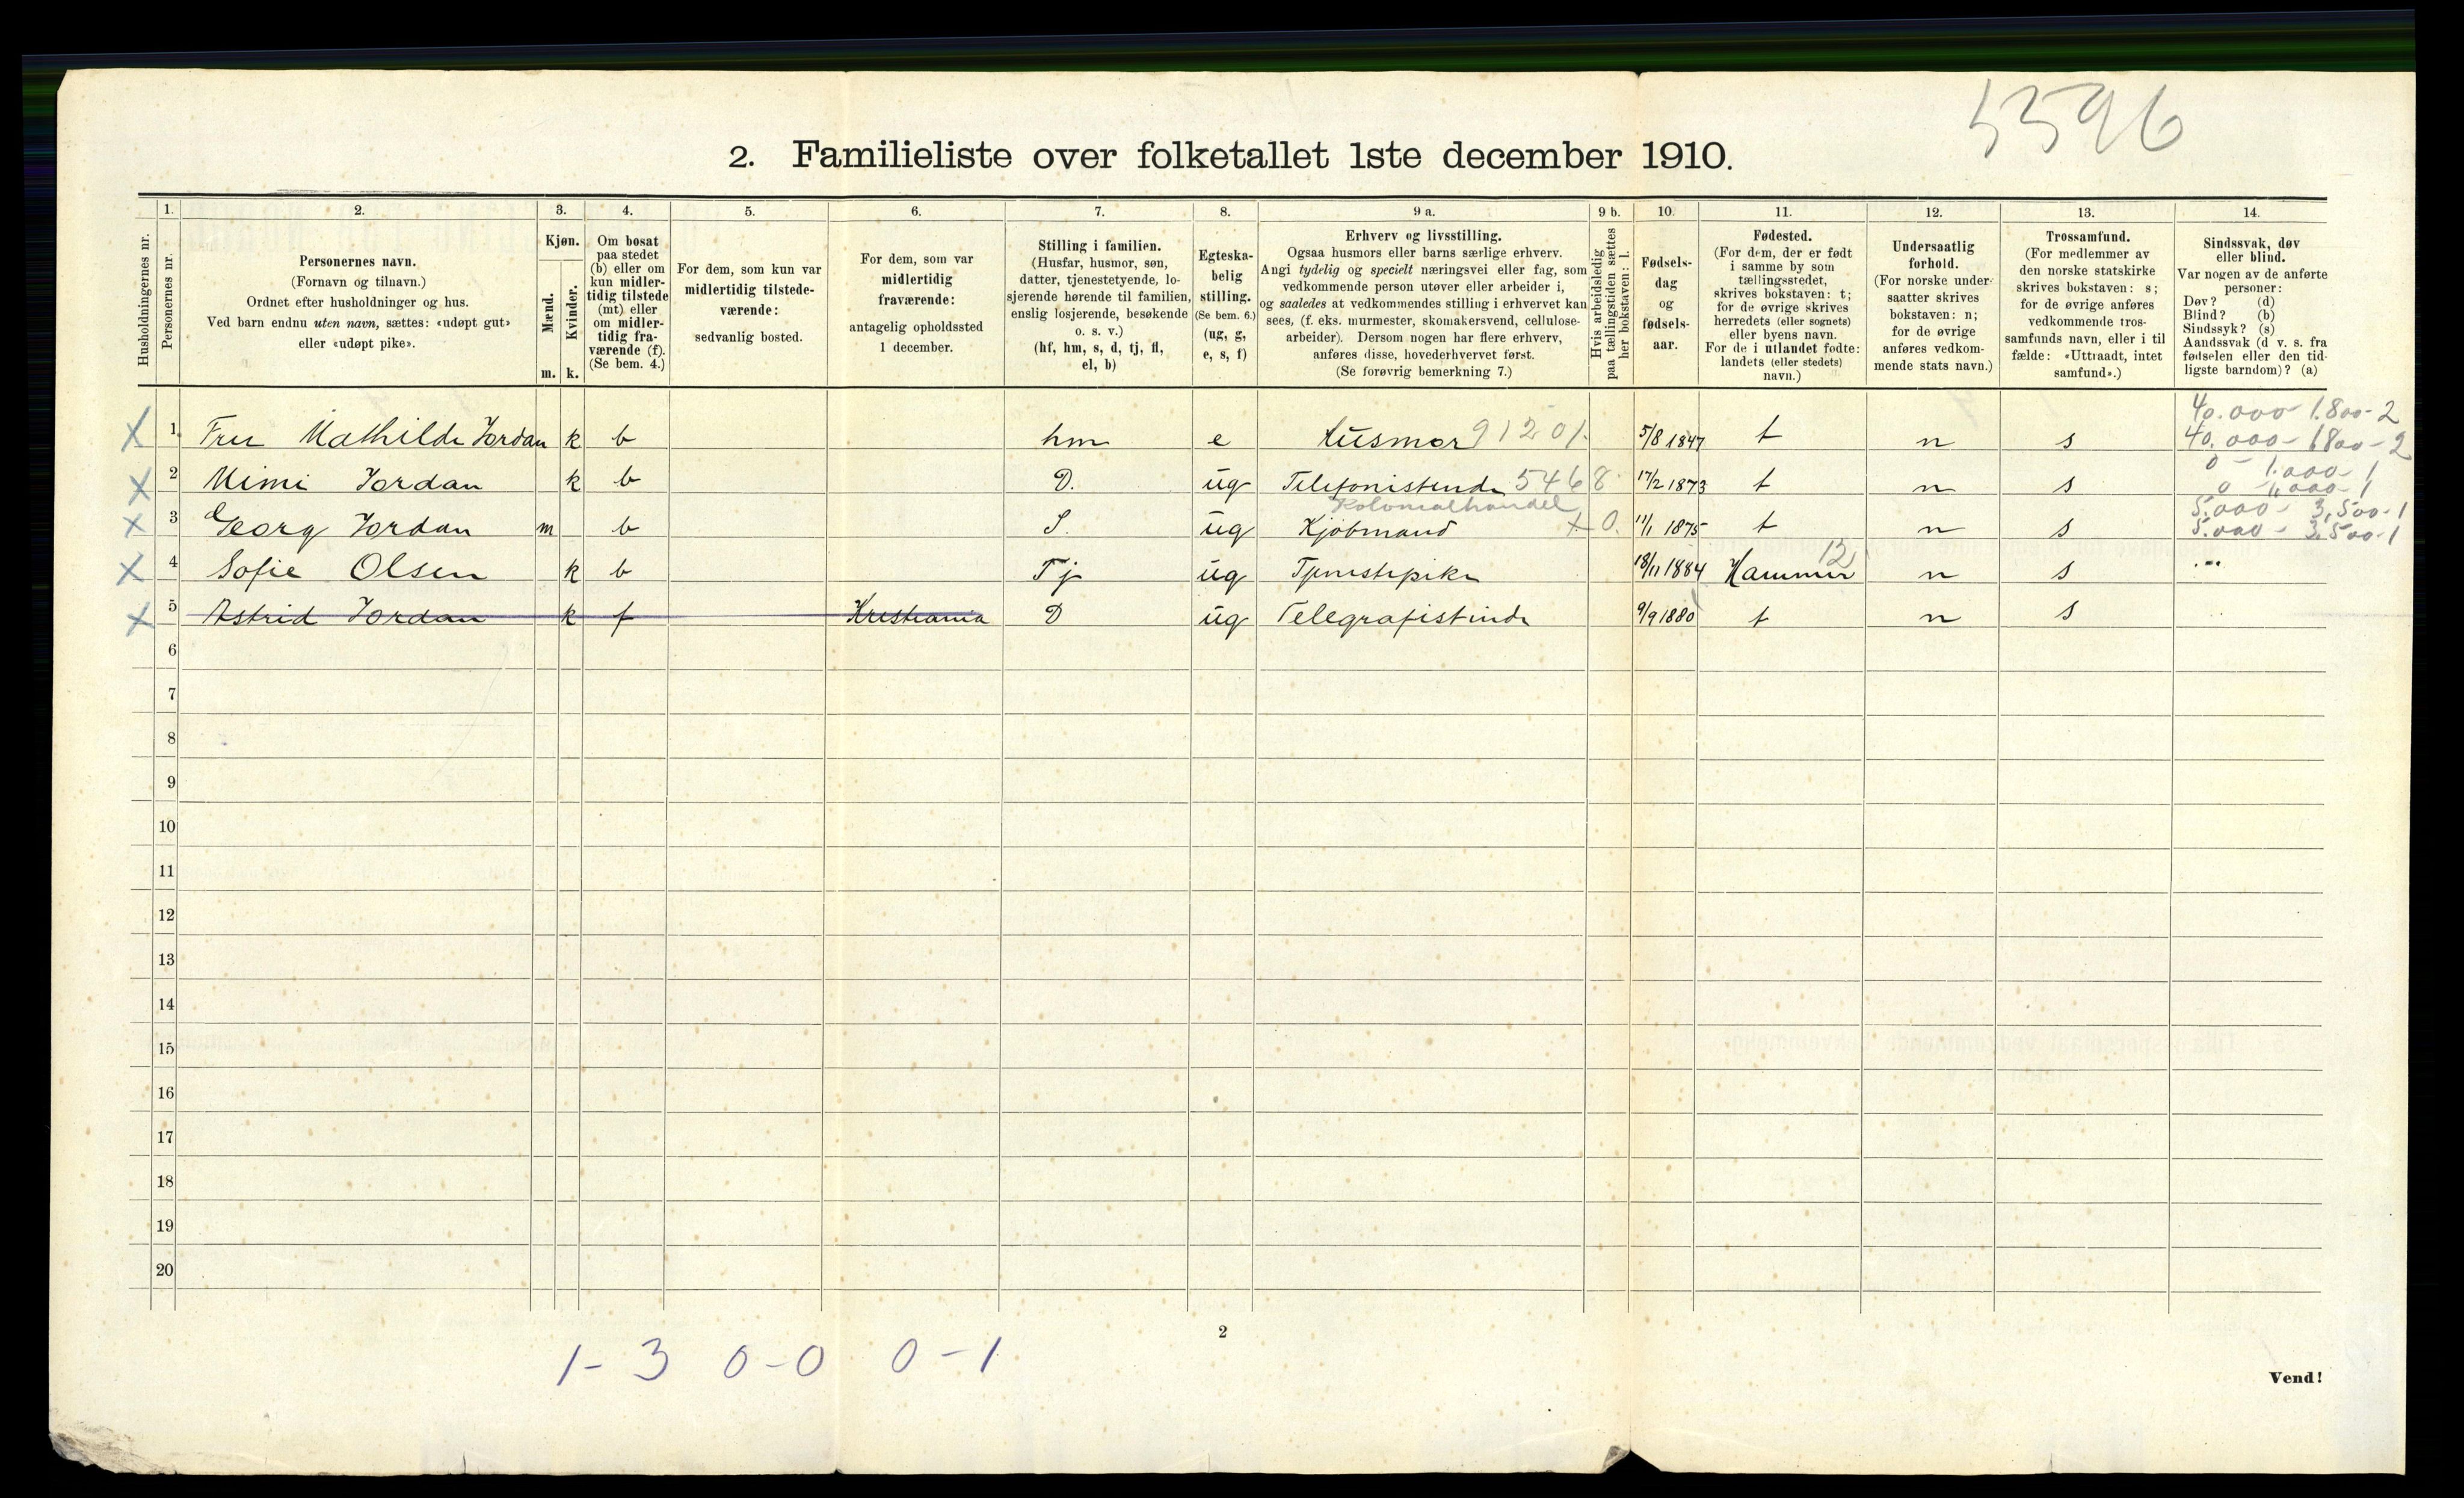 5596
2. Familieliste over folketallet 1ste december 1910.
1. 2. 3. 4. 5. 6. 7. 8. 9 a. 9 b. 10. 11. 12. 13. 14.
Husholdningernes nr.
Personernes nr.
Personernes navn.
(Fornavn og tilnavn.)
Ordnet efter husholdninger og hus.
Ved barn endnu uten navn, sættes: «udøpt gut»
eller «udøpt pike».
Kjøn.
Mænd.
Kvinder.
m. k.
Om bosat
paa stedet
(b) eller om
kun midler-
tidig tilstede
(mt) eller
om midler-
tidig fra-
værende (f).
(Se bem. 4.)
For dem, som kun var
midlertidig tilstede-
værende:
sedvanlig bosted.
For dem, som var
midlertidig
fraværende:
antagelig opholdssted
1 december.
Stilling i familien.
(Husfar, husmor, søn,
datter, tjenestetyende, lo-
sjerende hørende til familien,
enslig losjerende, besøkende
o. s. v.)
(hf, hm, s, d, tj, fl,
el, b)
Egteska-
belig
stilling.
(Se bem. 6.)
(ug, g,
e, s, f)
Erhverv og livsstilling.
Ogsaa husmors eller barns særlige erhverv.
Angi tydelig og specielt næringsvei eller fag, som
vedkommende person utøver eller arbeider i,
og saaledes at vedkommendes stilling i erhvervet kan
sees, (f. eks. murmester, skomakersvend, cellulose-
arbeider). Dersom nogen har flere erhverv,
anføres disse, hovederhvervet først.
(Se forøvrig bemerkning 7.)
Hvis arbeidsledig
paa tællingstiden sættes
her bokstaven: l.
Fødsels-
dag
og
fødsels-
aar.
Fødested.
(For dem, der er født
i samme by som
tællingsstedet,
skrives bokstaven: t;
for de øvrige skrives
herredets (eller sognets)
eller byens navn.
For de i utlandet fødte:
landets (eller stedets)
navn.)
Undersaatlig
forhold.
(For norske under-
saatter skrives
bokstaven: n;
for de øvrige
anføres vedkom-
mende stats navn.)
Trossamfund.
(For medlemmer av
den norske statskirke
skrives bokstaven: s;
for de øvrige anføres
vedkommende tros-
samfunds navn, eller i til
fælde: «Uttraadt, intet
samfund».)
Sindssvak, døv
eller blind.
Var nogen av de anførte
personer:
Døv? (d)
Blind? (b)
Sindssyk? (s)
Aandssvak (d v. s. fra
fødselen eller den tid-
ligste barndom)? (a)
40.000 - 1.800 - 2
X 1 Fru Mathilde Jordan k b hm e Husmor 91201. 5/8 1847 t n s 40.000 - 1800 - 2
0 - 1.000 - 1
X 2 Mimi Jordan k b D. ug Telefonistinde 5468 17/2 1873 t n s 0 1,000 - 1
Kolonialhandel 5.000 - 3,500 - 1
X 3 Georg Jordan m b S. ug Kjøbmand + 0. 11/1 1875 t n s 5.000 - 3.500 - 1
12
X 4 Sofie Olsen k b Tj ug Tjenestepike 18/11 1884 Hammer n s
X 5 Astrid Jordan k f Kristiania D ug Telegrafistinde 9/9 1880 t n s
6
7
8
9
10
11
12
13
14
15
16
17
18
19
20
2
1 - 3 0 - 0 0 - 1
Vend!